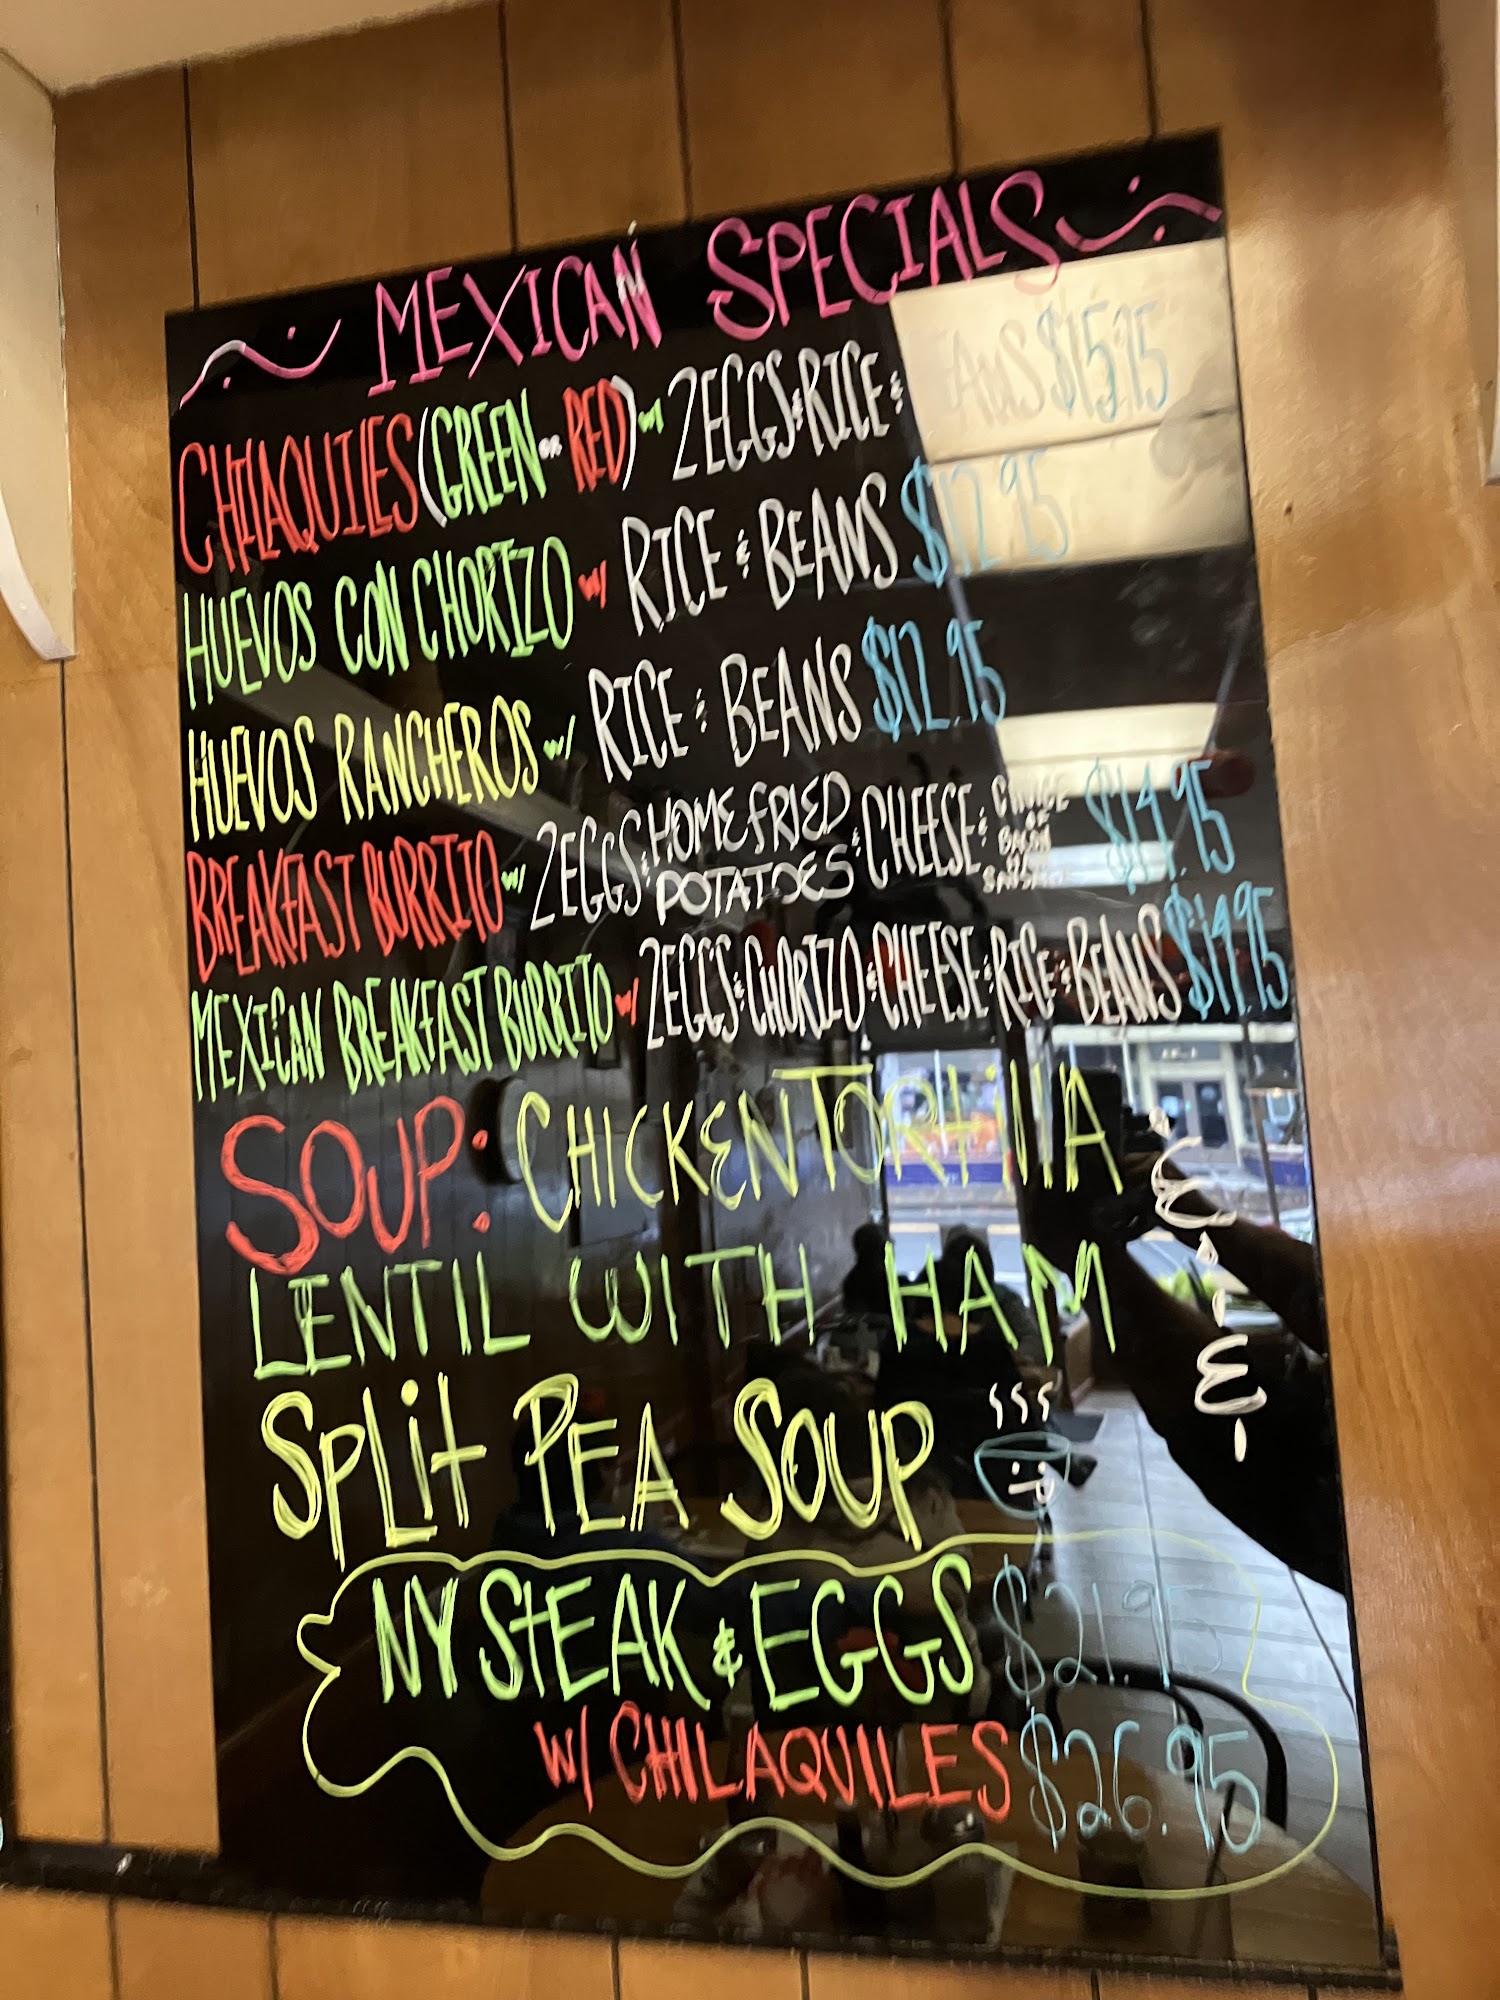 MEXICAN SPECIALS
CHILAQUILES (GREEN OR RED) w/ 2 EGGS & RICE & BEANS $15.95
HUEVOS CON CHORIZO w/ RICE & BEANS $12.95
HUEVOS RANCHEROS w/ RICE & BEANS $12.95
BREAKFAST BURRITO w/ 2 EGGS & HOME FRIED POTATOES & CHEESE & CHOICE OF BACON HAM SAUSAGE $14.95
MEXICAN BREAKFAST BURRITO w/ 2 EGGS & CHORIZO & CHEESE & RICE & BEANS $14.95
SOUP: CHICKEN TORTILLA
LENTIL WITH HAM
SPLIT PEA SOUP
NY STEAK & EGGS $21.95
W/ CHILAQUILES $26.95